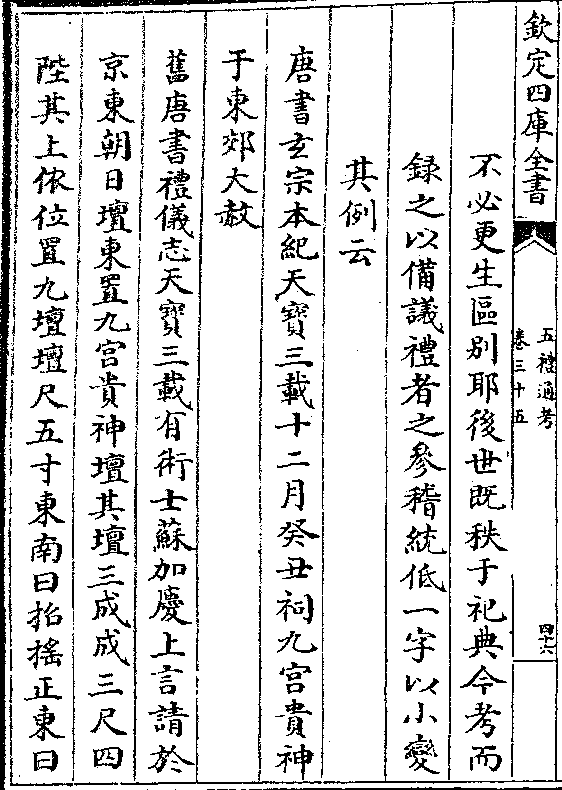 欽定四庫全書
五禮通考
卷三十五
四十六
不必更生區别耶後世既秩于祀典今考而
録之以備議禮者之參稽統低一字以小變
其例云
唐書玄宗本紀天寶三載十二月癸丑祠九宫貴神
于東郊大赦
舊唐書禮儀志天寶三載有術士蘇加慶上言請於
京東朝日壇東置九宫貴神壇其壇三成成三尺四
陛其上依位置九壇壇尺五寸東南曰招搖正東曰